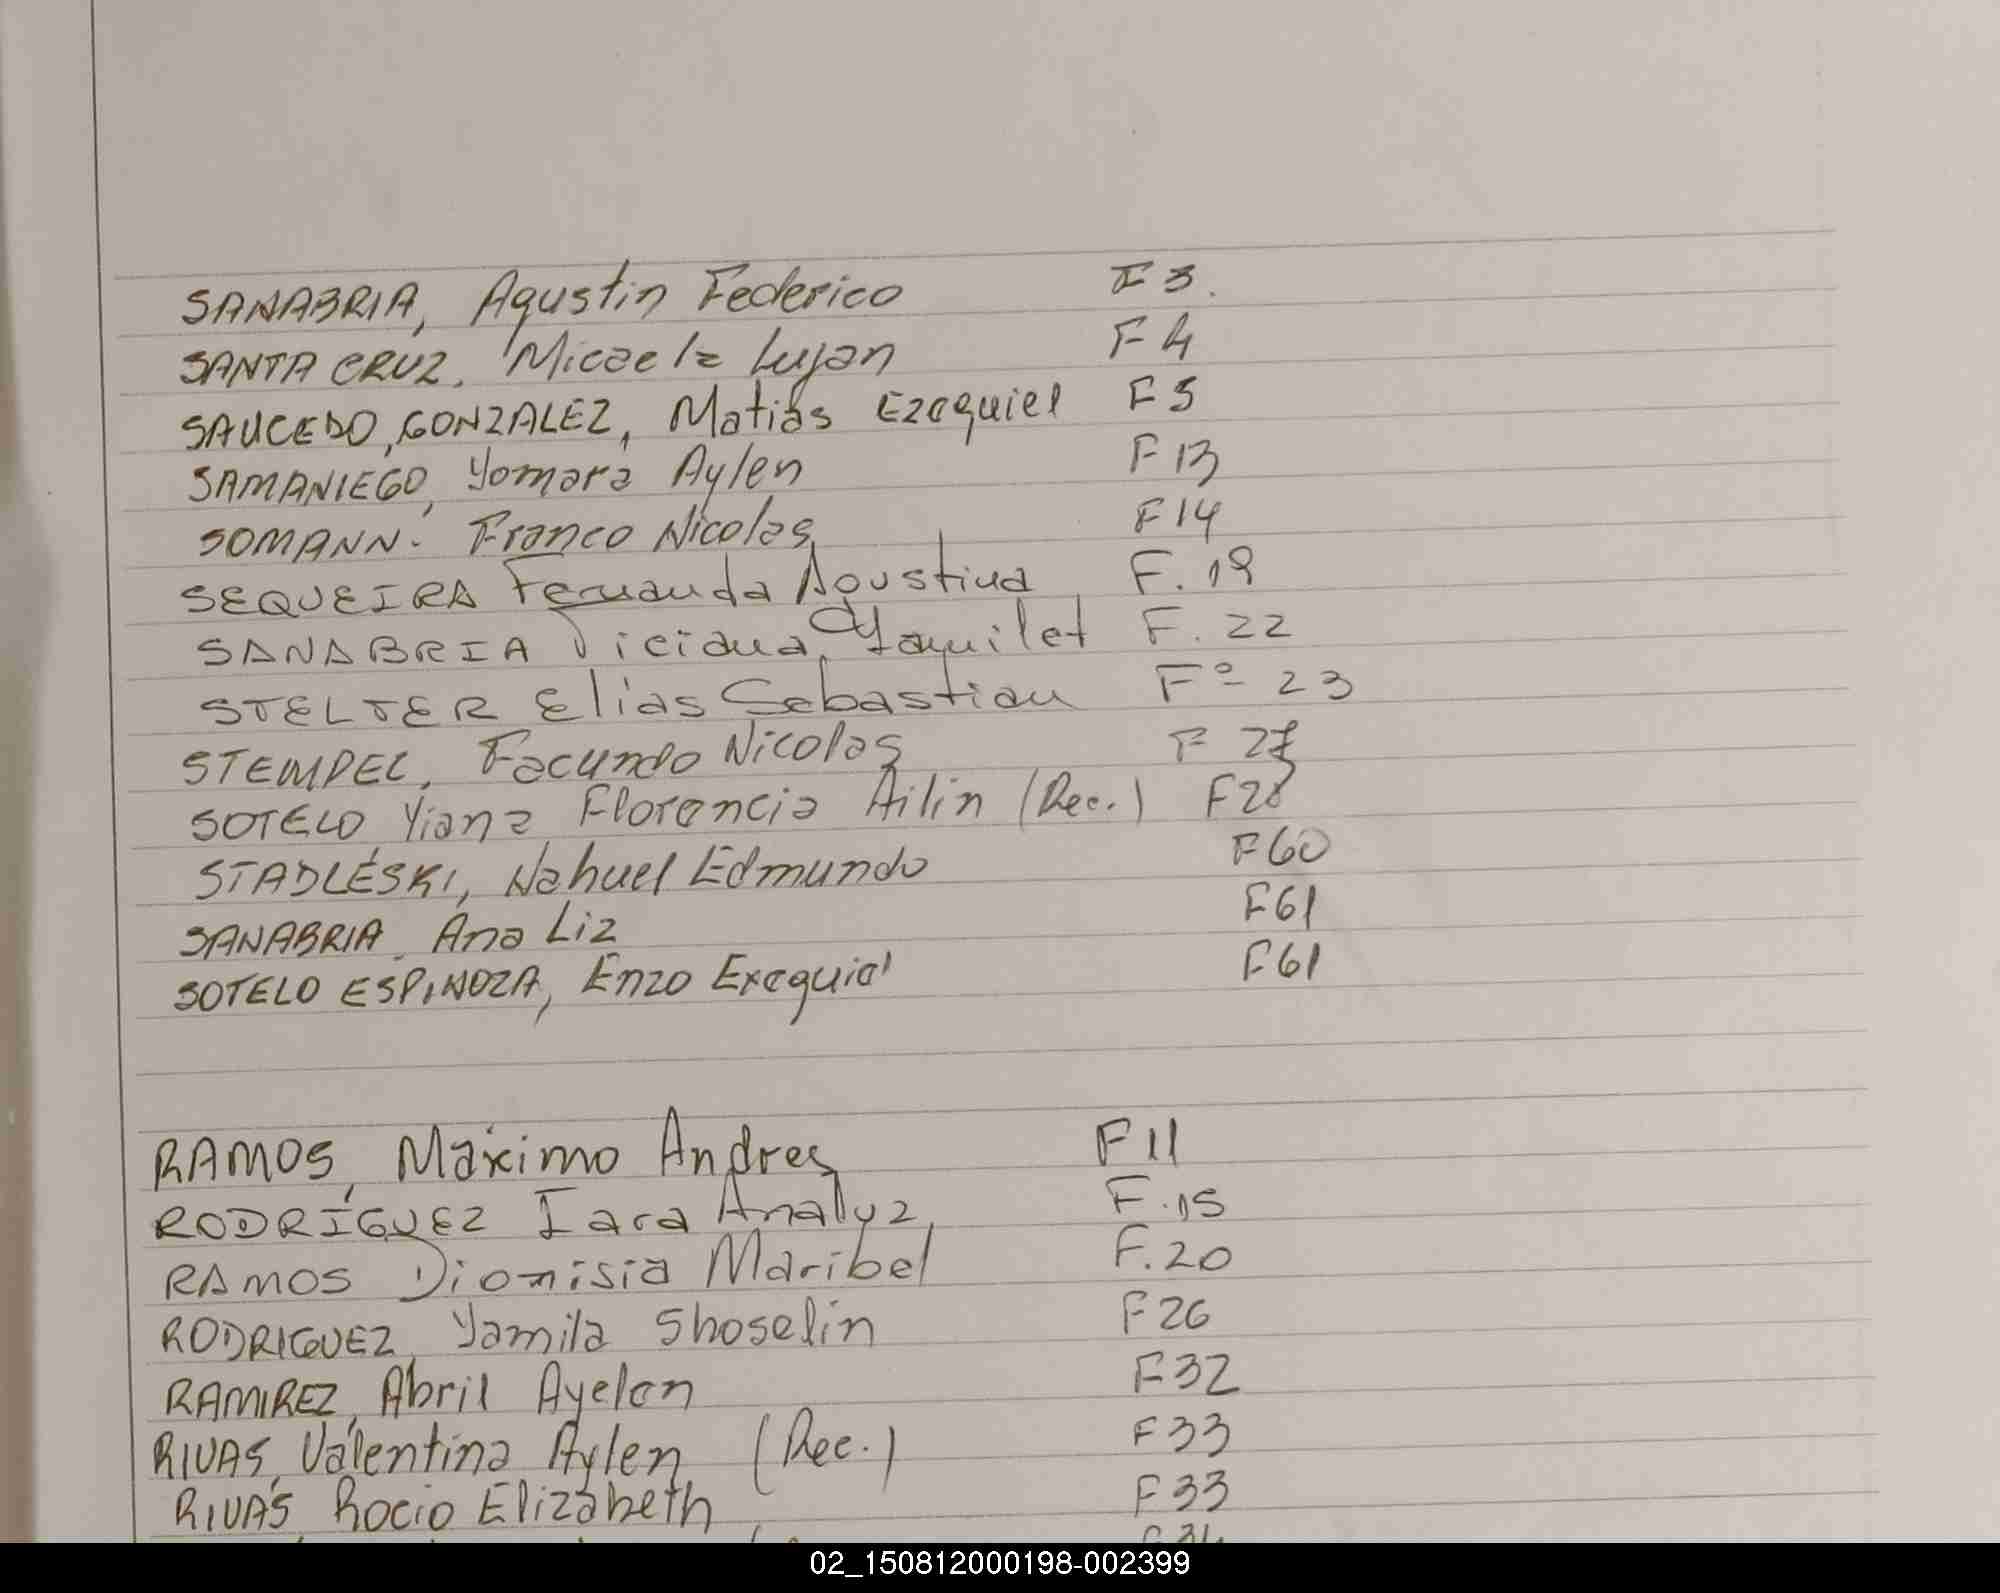 SANABRIA, Agustin Federico F 3.
SANTA CRUZ, Micaela Lujan F 4
SAUCEDO, GONZALEZ, Matias Ezequiel F 5
SAMANIEGO, Yomara Aylen F 13
SOMANN. Franco Nicolas F 14
SEQUEIRA Fernanda Agustina F. 19
SANABRIA Ticiana, Yaquilet F. 22
STELTER Elias Sebastian Fº 23
STEMPEL, Facundo Nicolas F 27
SOTELO Yiana Florencia Ailin (Rec.) F28
STADLESKI, Nahuel Edmundo F60
SANABRIA, Ana Liz F61
SOTELO ESPINOZA, Enzo Exequiel F61
RAMOS, Máximo Andres F 11
RODRÍGUEZ Iara Analyz F.15
RAMOS Dionisia Maribel F.20
RODRIGUEZ, Yamila Shoselin F26
RAMIREZ, Abril Ayelen F32
RIVAS, Valentina Aylen (Rec.) F33
RIVAS Rocio Elizabeth F33
02_150812000198-002399